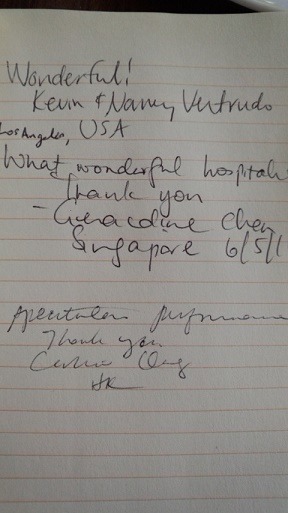 Wonderful!
Kevin & Nancy Vertrudo
Los Angeles, USA
What wonderful hospitali
Thank you
- Geraldine Chen
Singapore 6/5/1
performance
Thank you
HK